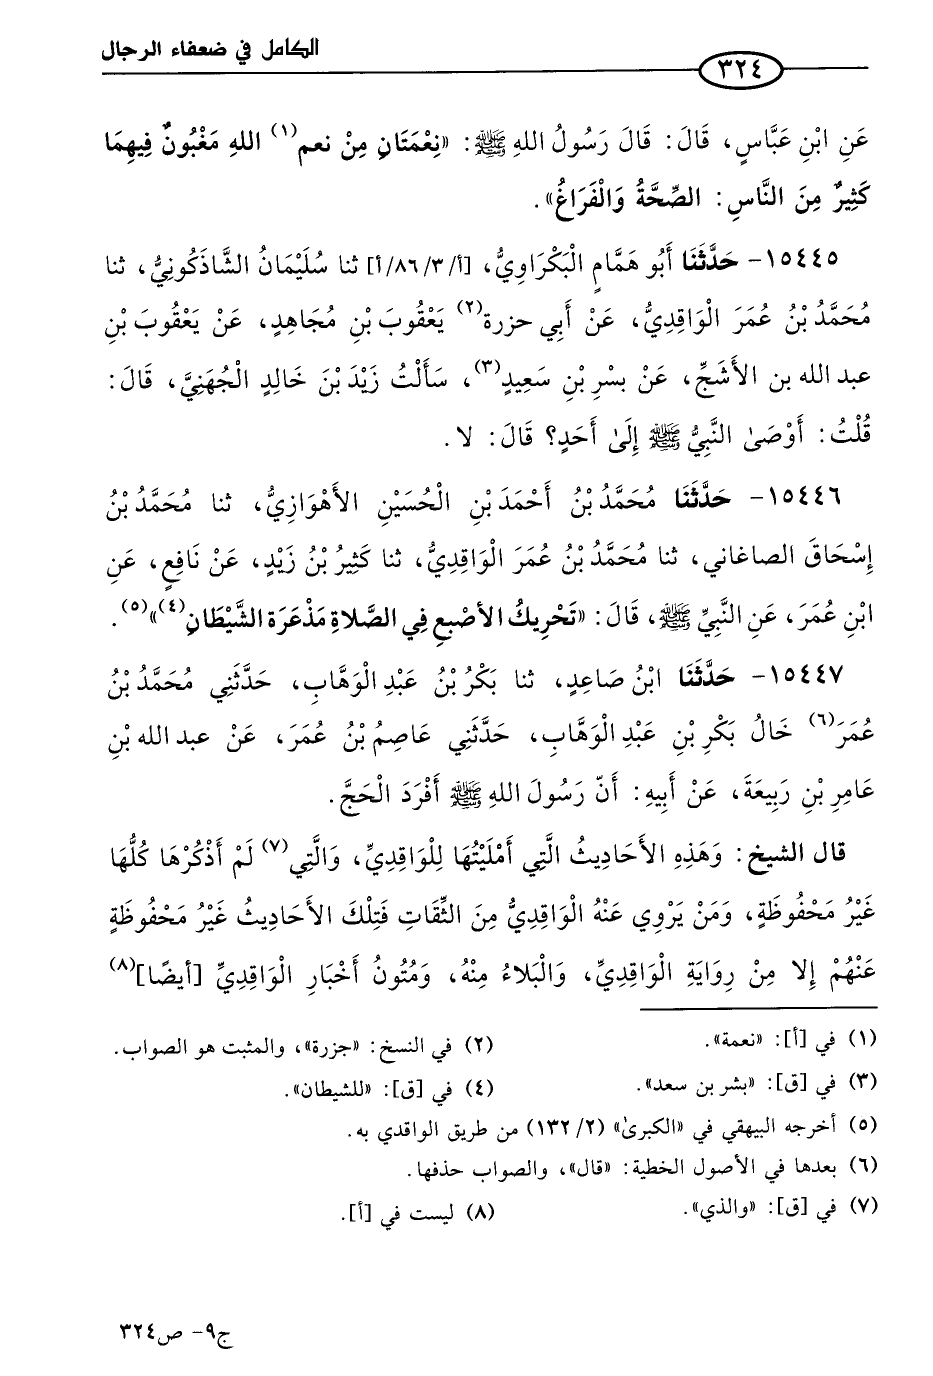 الكامل في ضعفاء الرجال
٣٢٤
عَنِ ابْنِ عَبَّاسٍ، قَالَ: قَالَ رَسُولُ اللهِ ﷺ: «نِعْمَتَانِ مِنْ نعم(١) اللهِ مَغْبُونٌ فِيهِمَا
كَثِيرٌ مِنَ النَّاسِ: الصِّحَّةُ وَالْفَرَاغُ».
١٥٤٤٥- حَدَّثَنَا أَبُو هَمَّامٍ الْبَكْرَاوِيُّ، [أ/٣/ ٨٦/أ] ثنا سُلَيْمَانُ الشَّاذَكُونِيُّ، ثنا
مُحَمَّدُ بْنُ عُمَرَ الْوَاقِدِيُّ، عَنْ أَبِي حزرة(٢) يَعْقُوبَ بْنِ مُجَاهِدٍ، عَنْ يَعْقُوبَ بْنِ
عبد الله بن الأَشَجِّ، عَنْ بسْرِ بْنِ سَعِيدٍ(٣)، سَأَلْتُ زَيْدَ بْنَ خَالِدٍ الْجُهَنِيَّ، قَالَ:
قُلْتُ: أَوْصَىٰ النَّبِيُّ ﷺ إِلَىٰ أَحَدٍ؟ قَالَ: لا.
١٥٤٤٦- حَدَّثَنَا مُحَمَّدُ بْنُ أَحْمَدَ بْنِ الْحُسَيْنِ الأَهْوَازِيُّ، ثنا مُحَمَّدُ بْنُ
إِسْحَاقَ الصاغاني، ثنا مُحَمَّدُ بْنُ عُمَرَ الْوَاقِدِيُّ، ثنا كَثِيرُ بْنُ زَيْدٍ، عَنْ نَافِعٍ، عَنِ
ابْنِ عُمَرَ، عَنِ النَّبِيِّ ﷺ، قَالَ: «تَحْرِيكُ الأصْبعِ فِي الصَّلاةِ مَذْعَرَة الشَّيْطَانِ(٤)»(٥).
١٥٤٤٧- حَدَّثَنَا ابْنُ صَاعِدٍ، ثنا بَكْرُ بْنُ عَبْدِ الْوَهَّابِ، حَدَّثَنِي مُحَمَّدُ بْنُ
عُمَرَ(٦) خَالُ بَكْرِ بْنِ عَبْدِ الْوَهَّابِ، حَدَّثَنِي عَاصِمُ بْنُ عُمَرَ، عَنْ عبد الله بْنِ
عَامِرِ بْنِ رَبِيعَةَ، عَنْ أَبِيهِ: أَنّ رَسُولَ اللهِ ﷺ أَفْرَدَ الْحَجَّ.
قال الشيخ: وَهَذِهِ الأَحَادِيثُ الَّتِي أَمْلَيْتُهَا لِلْوَاقِدِيِّ، وَالَّتِي(٧) لَمْ أَذْكُرْهَا كُلُّهَا
غَيْرُ مَحْفُوظَةٍ، وَمَنْ يَرْوِي عَنْهُ الْوَاقِدِيُّ مِنَ الثِّقَاتِ فَتِلْكَ الأَحَادِيثُ غَيْرُ مَحْفُوظَةٍ
عَنْهُمْ إِلا مِنْ رِوَايَةِ الْوَاقِدِيِّ، وَالْبَلاءُ مِنْهُ، وَمُتُونُ أَخْبَارِ الْوَاقِدِيِّ [أيضًا](٨)
(١) في [أ]: «نعمة».
(٢) في النسخ: «جزرة»، والمثبت هو الصواب.
(٣) في [ق]: «بشر بن سعد».
(٤) في [ق]: «للشيطان».
(٥) أخرجه البيهقي في «الكبرىٰ» (٢/ ١٣٢) من طريق الواقدي به.
(٦) بعدها في الأصول الخطية: «قال»، والصواب حذفها.
(٧) في [ق]: «والذي».
(٨) ليست في [أ].
ج٩- ص٣٢٤